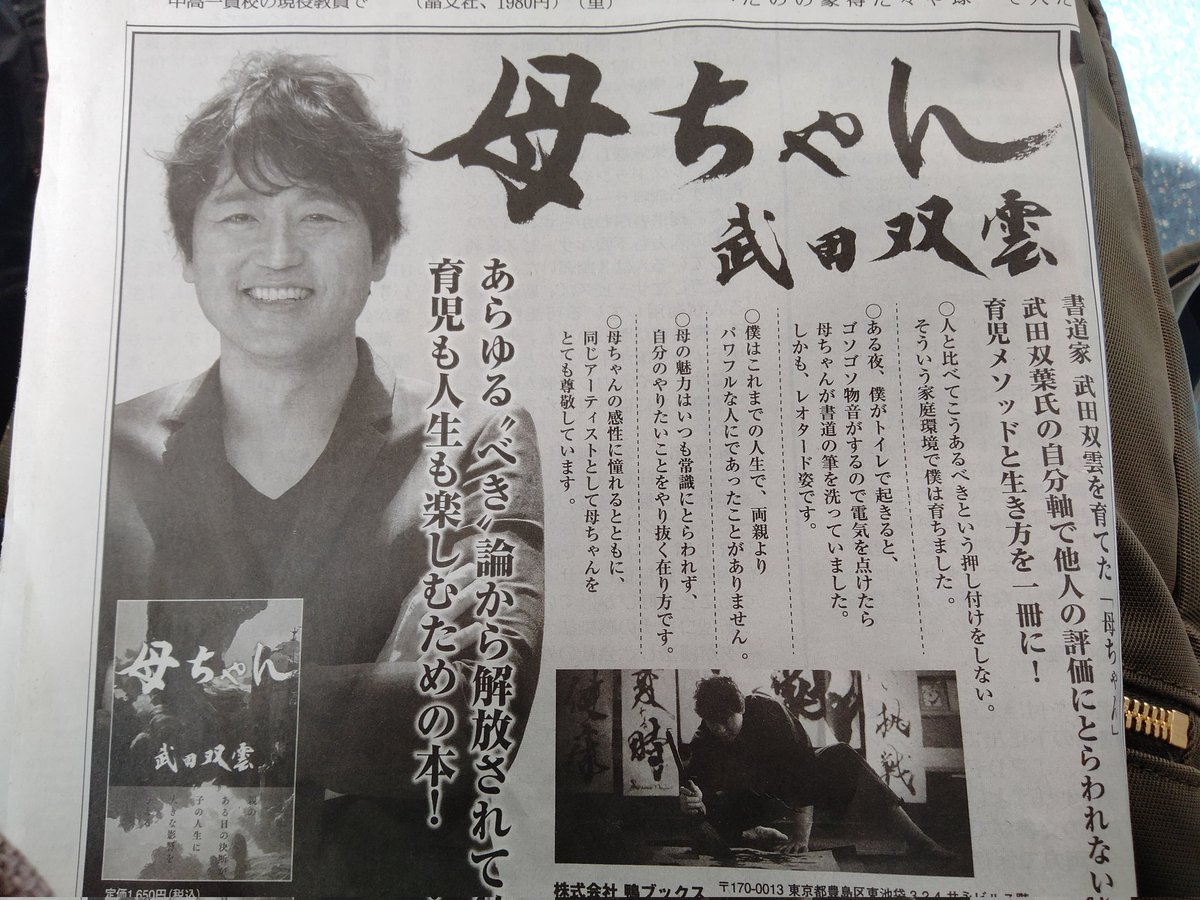 中高一貫校の現役教員で
（晶文社、1980円）（里）
母ちゃん
武田双雲
書道家 武田双雲を育てた「母ちゃん」
武田双葉氏の自分軸で他人の評価にとらわれない
育児メソッドと生き方を一冊に！
○人と比べてこうあるべきという押し付けをしない。
そういう家庭環境で僕は育ちました。
○ある夜、僕がトイレで起きると、
ゴソゴソ物音がするので電気を点けたら
母ちゃんが書道の筆を洗っていました。
しかも、レオタード姿です。
○僕はこれまでの人生で、両親より
パワフルな人にであったことがありません。
○母の魅力はいつも常識にとらわれず、
自分のやりたいことをやり抜く在り方です。
○母ちゃんの感性に憧れるとともに、
同じアーティストとして母ちゃんを
とても尊敬しています。
あらゆる〝べき〟論から解放されて
育児も人生も楽しむための本！
母ちゃん
武田双雲
親の
ある日の決断が
子の人生に
大きな影響を
挑戦
時
定価1,650円（税込）
株式会社 鴨ブックス
〒170-0013 東京都豊島区東池袋3-2-4